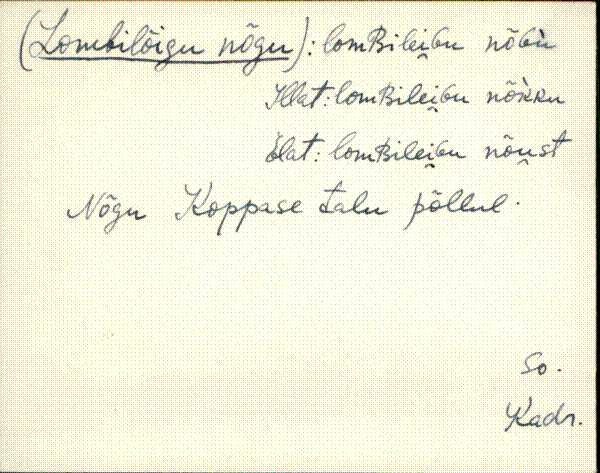 (Lombilõigu nõgu): lomʙilei̯ɢu nõɢu
Illat: lomʙilei̯ɢu nõkku
Elat: lomʙilei̯ɢu nõu̯st
Nõgu Koppase talu põllul.
So.
Kadr.